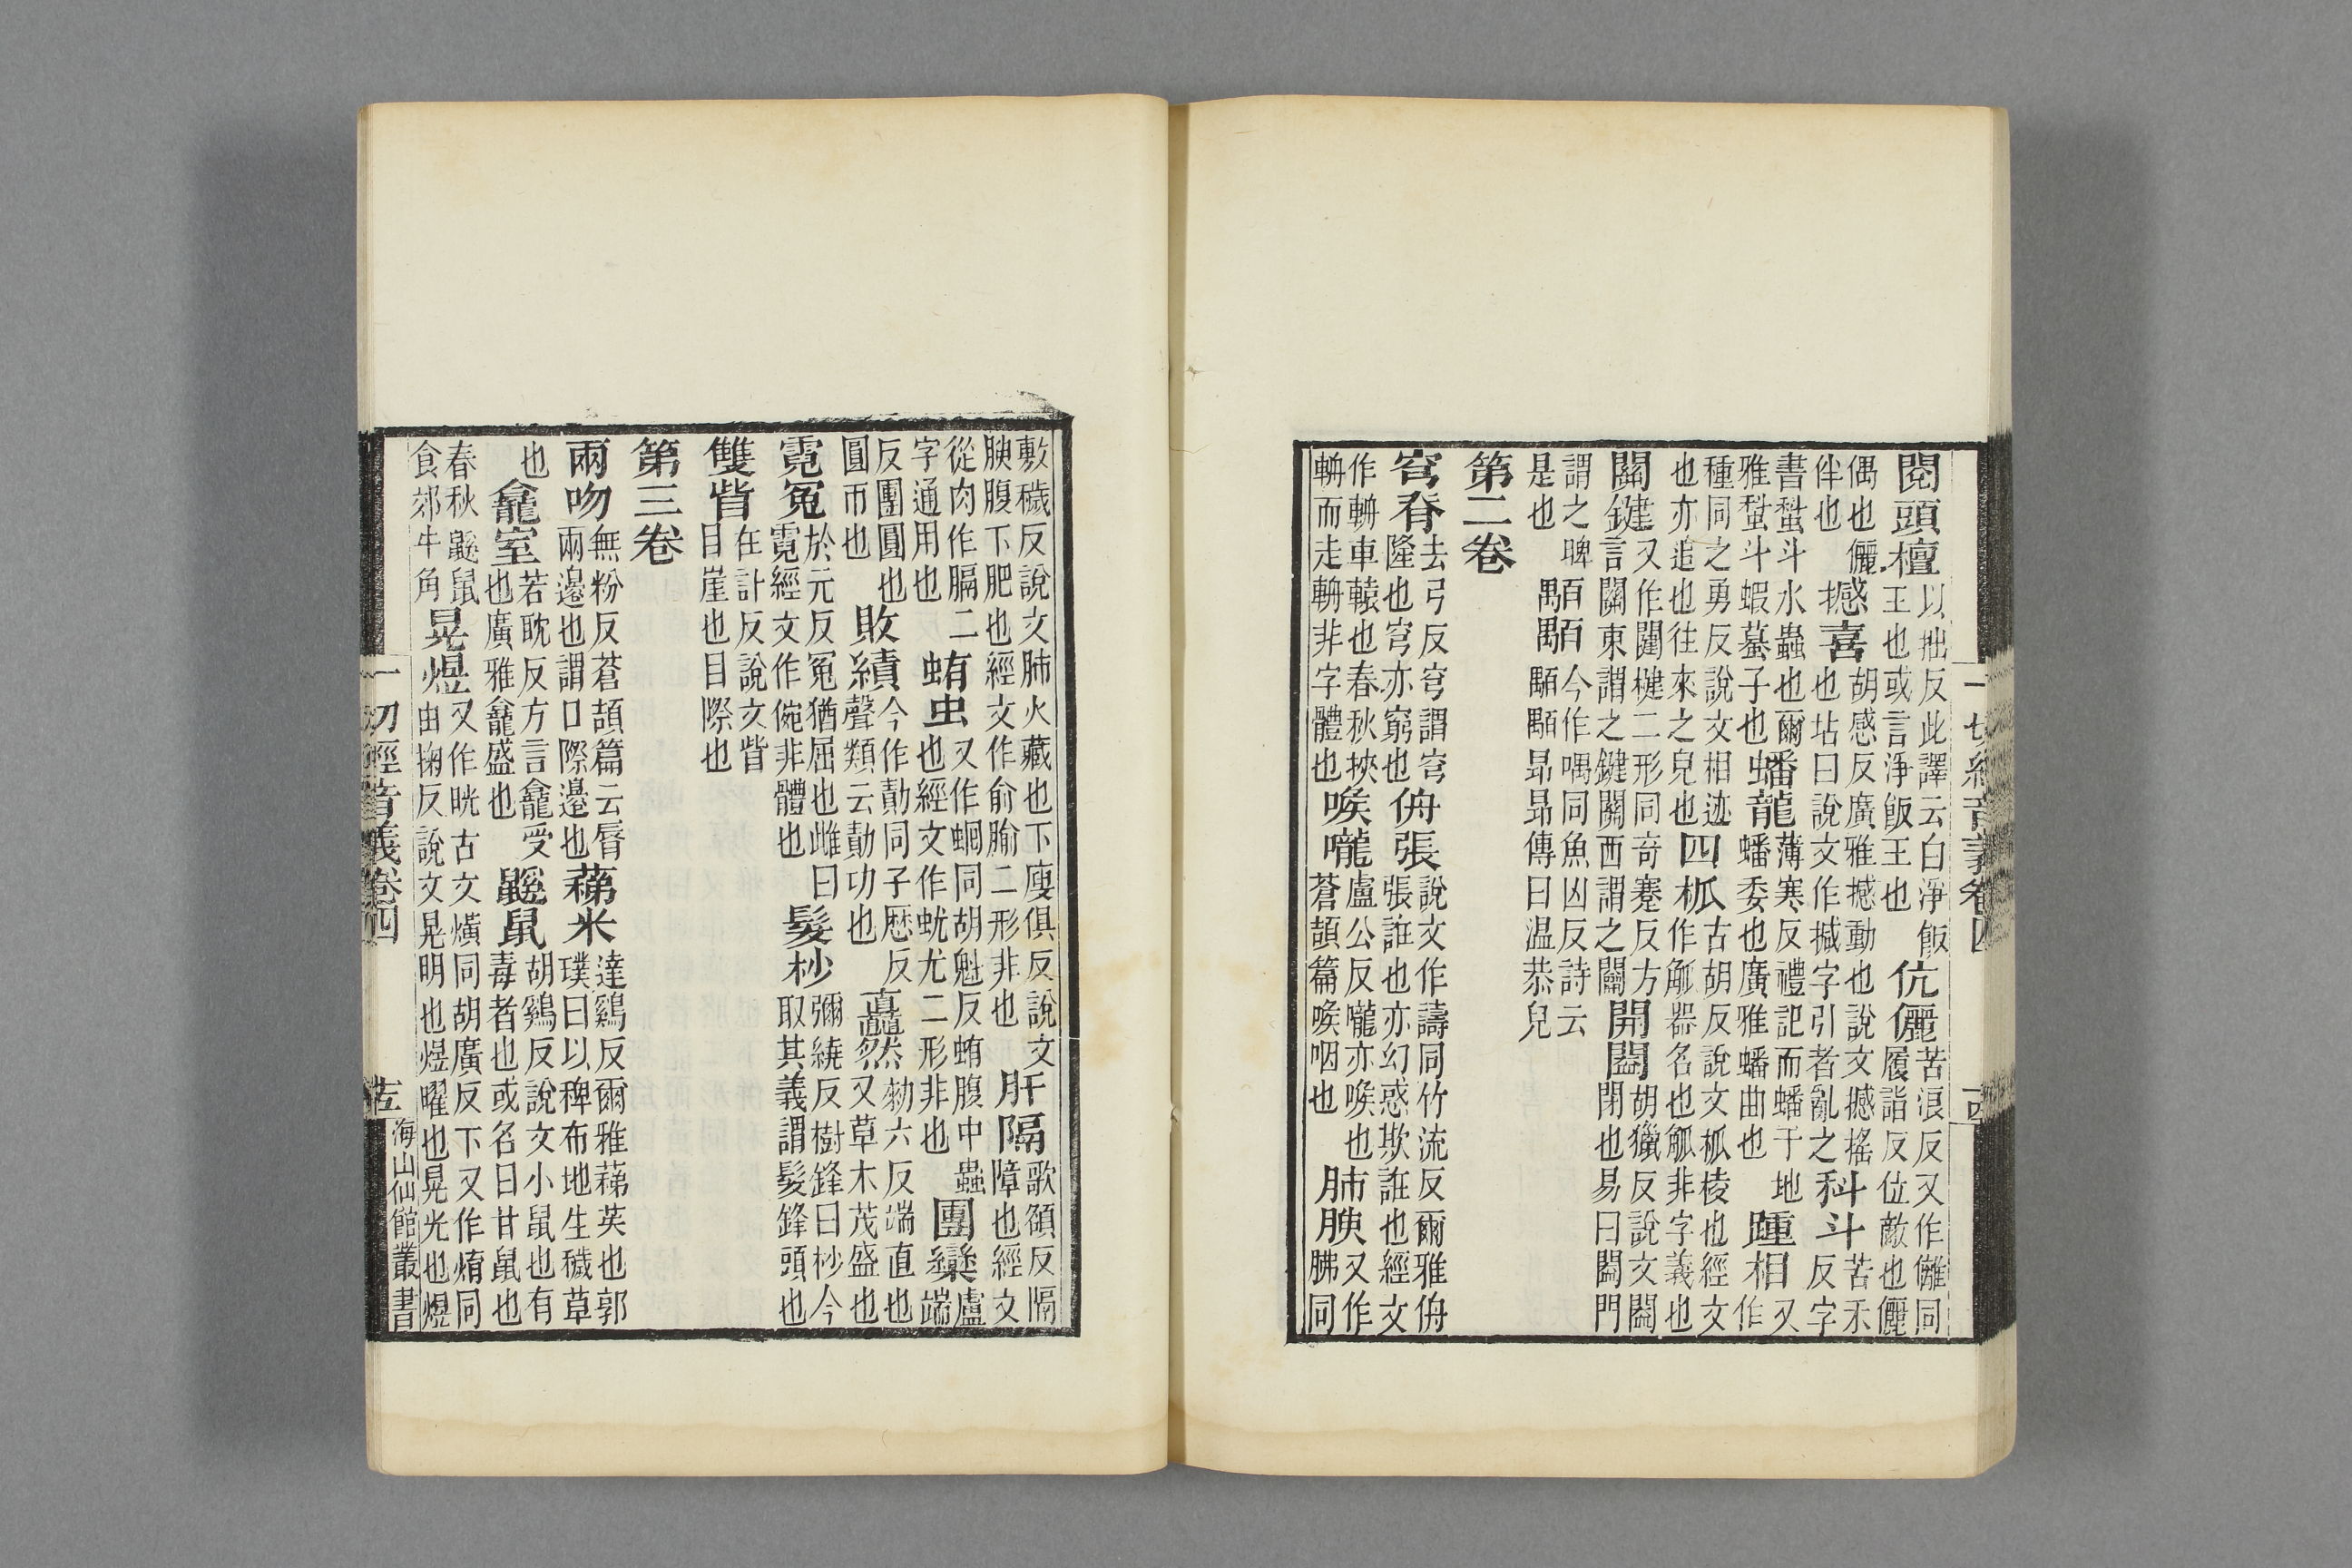 閱頭檀以拙反此譯云白淨飯王也或言淨飯王也伉儷苦浪反又作㒧同履詣反位敵也儷
偶也儷伴也撼喜胡感反廣雅撼動也說文撼搖也坫曰說文作揻字引者亂之科斗苦禾反字
書斗水蟲也爾雅斗蝦蟇子也蟠龍薄寒反禮記而蟠于地蟠委也廣雅蟠曲也踵相又作
種同之勇反說文相迹也亦追也往來之皃也四柧古胡反說文柧棱也經文作觚器名也觚非字義也
關鍵又作楗二形同奇蹇反方言關東謂之鍵關西謂之闗開闔胡獵反說文闔閉也易曰闔門
謂之是也顒顒今作喁同魚凶反詩云顒顒昂昂傳曰温恭皃
第二卷
穹脊去弓反穹謂穹隆也穹亦窮也侜張說文作譸同竹流反爾雅侜張誑也亦幻惑欺誑也經文
作輈車轅也春秋挾輈而走輈非字體也喉嚨盧公反嚨亦喉也蒼頡篇喉咽也肺腴又作胇同
一切經音義卷四
十四
敷穢反說文肺火藏也下庾俱反說文腴腹下肥也經文作俞腧二形非也肝隔歌頟反隔障也經文
從肉作膈二字通用也蛕虫又作蜖同胡魁反蛕腹中蟲也經文作蚘尤二形非也團欒盧端
反團圓也圓帀也敗績今作勣同子歷反聲類云勣功也矗然勑六反端直也又草木茂盛也
霓冤於元反冤猶屈也雌曰霓經文作㑌非體也髮杪彌繞反樹鋒曰杪今取其義謂髮鋒頭也
雙眥在計反說文眥目崖也目際也
第三卷
兩吻無粉反蒼頡篇云脣兩邊也謂口際邊也稊米達鷄反爾雅稊英也郭璞曰以稗布地生穢草
也龕室若耽反方言龕受也廣雅龕盛也鼷鼠胡鷄反說文小鼠也有毒者也或名曰甘鼠也
春秋鼷鼠食郊牛角晃煜又作晄古文爌同胡廣反下又作焴同由掬反說文晃明也煜曜也晃光也煜
一切經音義卷四
十五
海山仙館叢書